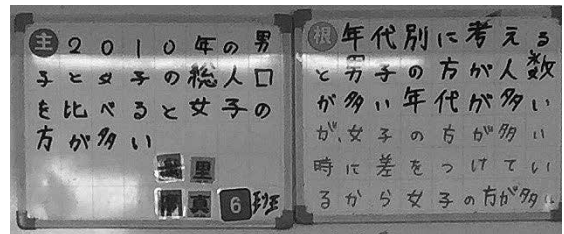 主 2010年の男
子と女子の総人口
を比べると女子の
方が多い
里
真 6班
根 年代別に考える
と男子の方が人数
が多い年代が多い
が、女子の方が多い
時に差をつけてい
るから女子の方が多い